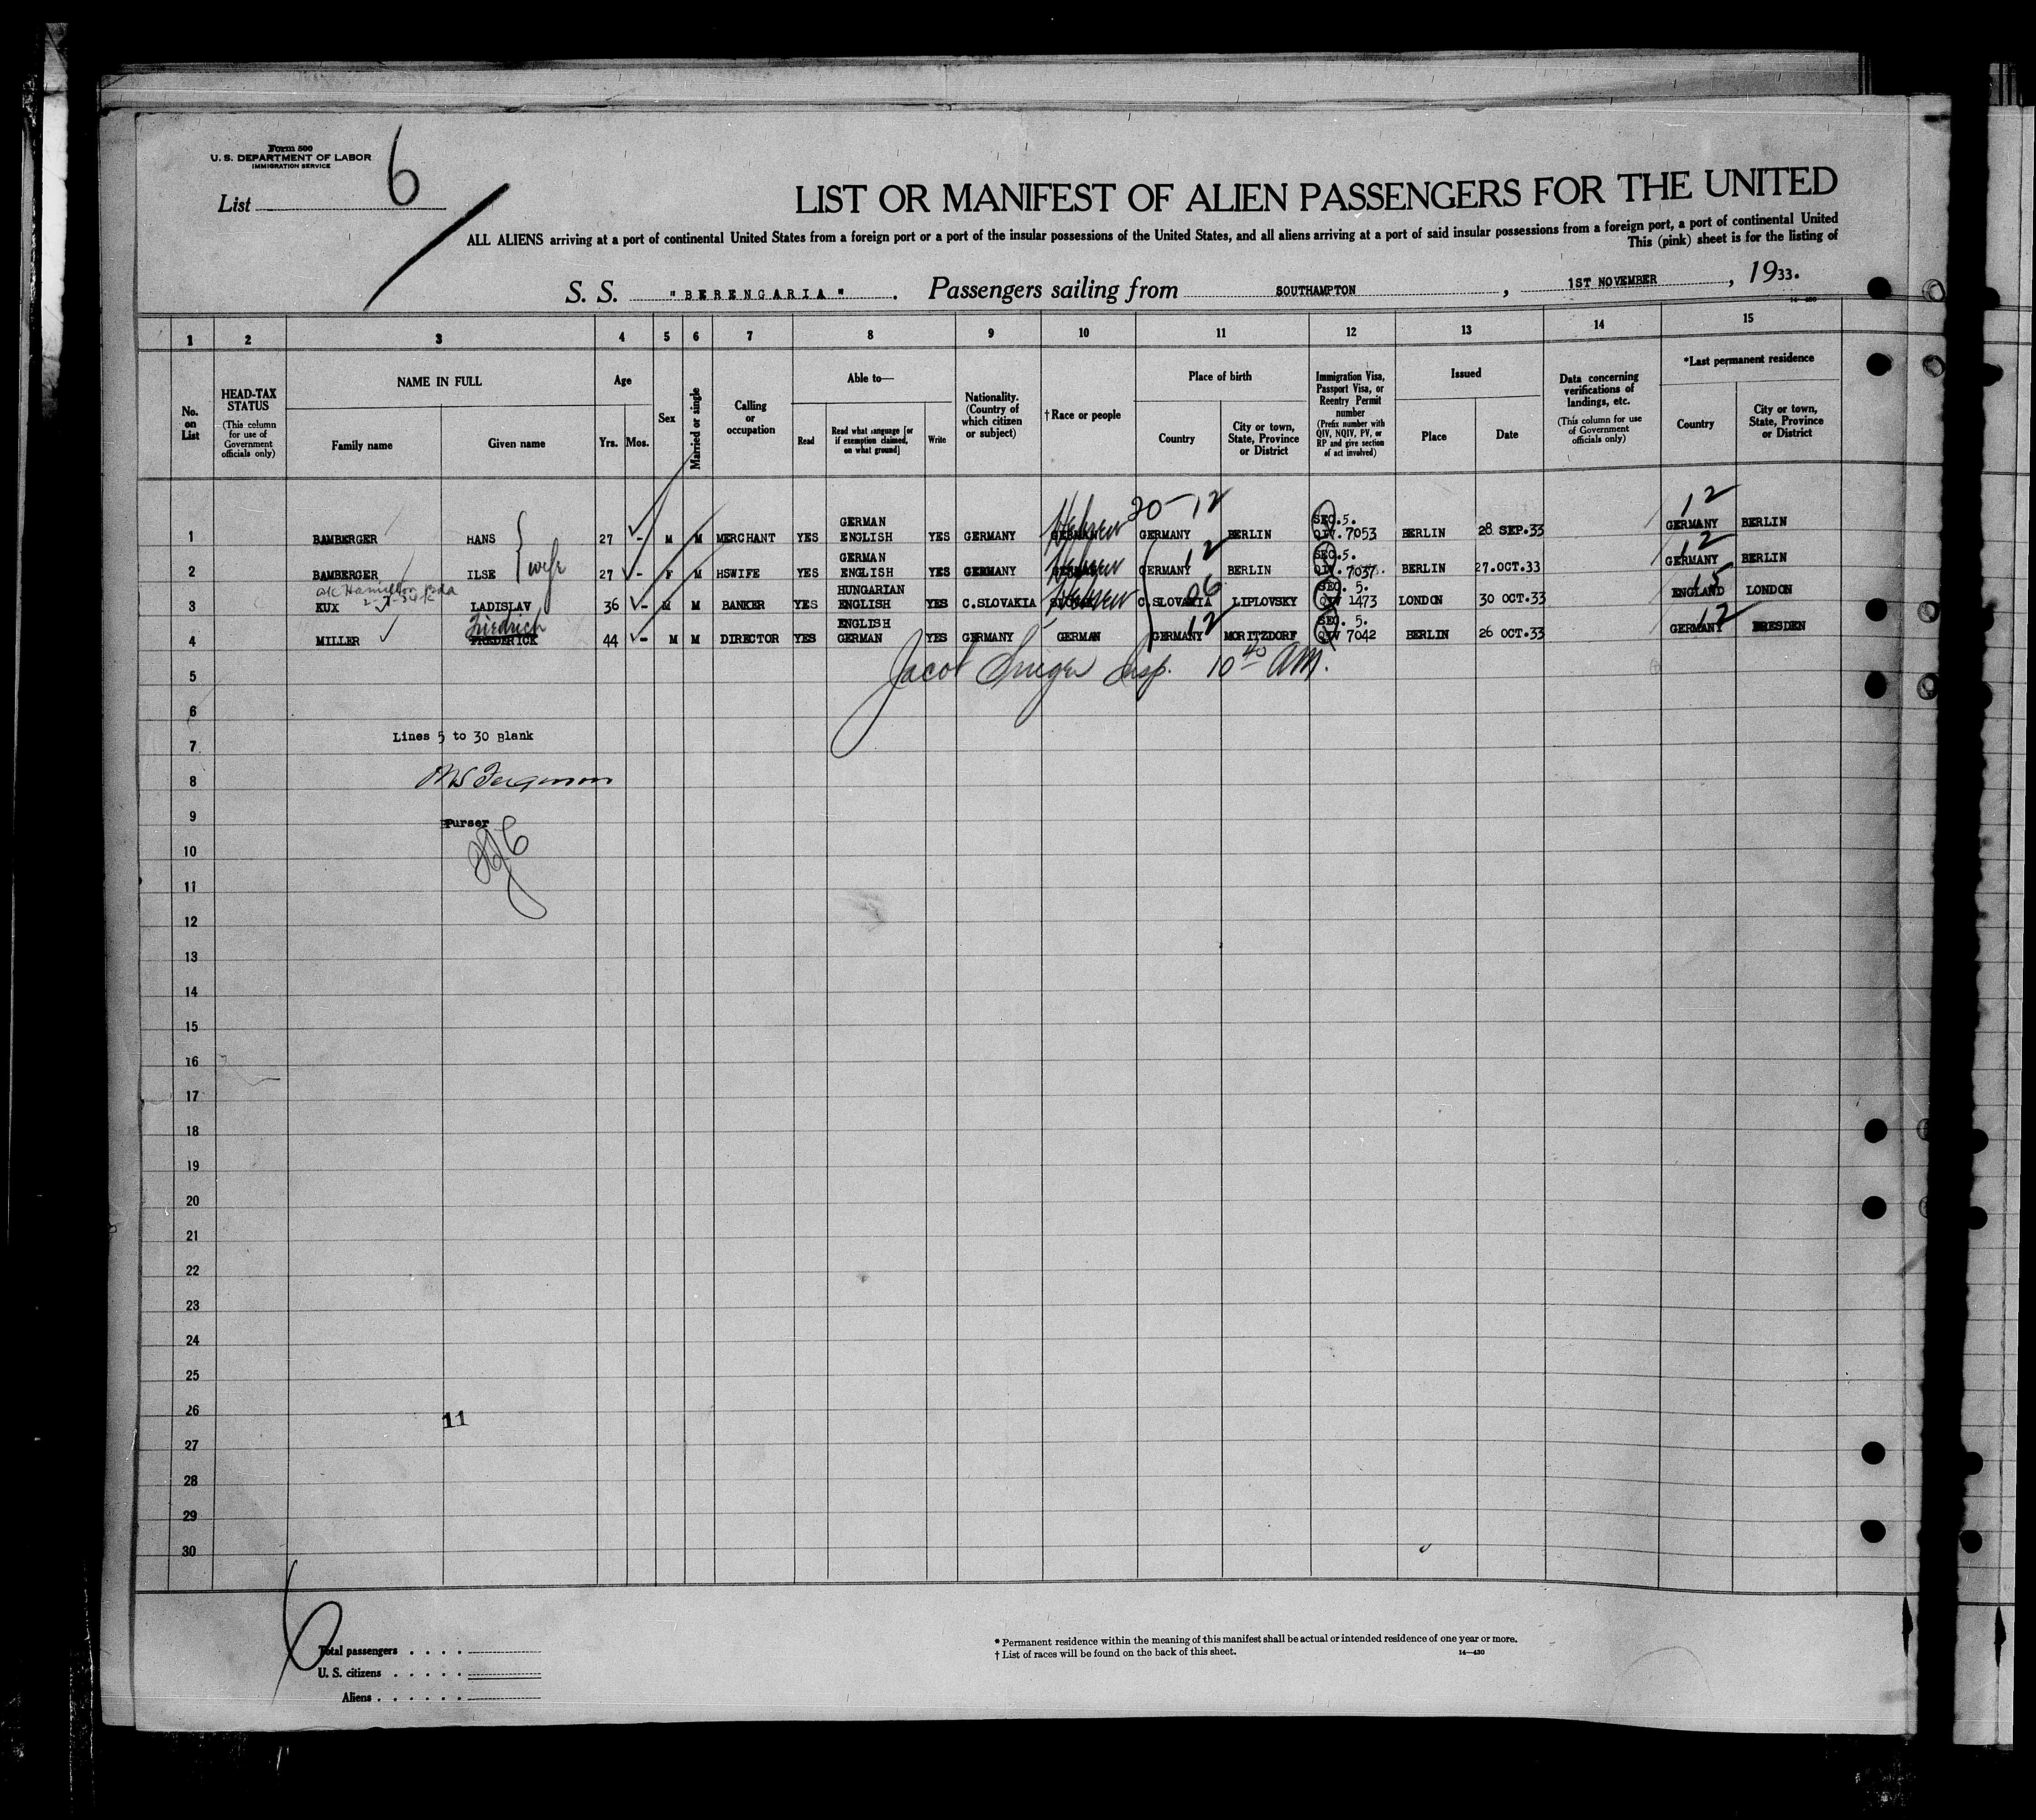 Form 500
U. S. DEPARTMENT OF LABOR
IMMIGRATION SERVICE
List 6
LIST OR MANIFEST OF ALIEN PASSENGERS FOR THE UNITED
ALL ALIENS arriving at a port of continental United States from a foreign port or a port of the insular possessions of the United States, and all aliens arriving at a port of said insular possessions from a foreign port, a port of continental United
This (pink) sheet is for the listing of
S. S. "BERENGARIA". Passengers sailing from SOUTHAMPTON, 1ST NOVEMBER, 1933.
14-430
1 2 3 4 5 6 7 8 9 10 11 12 13 14 15
No. on List
HEAD-TAX STATUS (This column for use of Government officials only)
NAME IN FULL
Family name
Given name
Age
Yrs. Mos.
Sex
Married or single
Calling or occupation
Able to—
Read
Read what language [or if exemption claimed, on what ground]
Write
Nationality. (Country of which citizen or subject)
†Race or people
Place of birth
Country
City or town, State, Province or District
Immigration Visa, Passport Visa, or Reentry Permit number (Prefix number with QIV, NQIV, PV, or RP and give section of act involved)
Issued
Place
Date
Data concerning verifications of landings, etc. (This column for use of Government officials only)
*Last permanent residence
Country
City or town, State, Province or District
20-12 12
GERMAN SEC.5.
1 BAMBERGER HANS 27 - M M MERCHANT YES ENGLISH YES GERMANY Hebrew GERMANY BERLIN QIV. 7053 BERLIN 28 SEP.33 GERMANY BERLIN
wife
GERMAN 12 SEC.5. 12
2 BAMBERGER ILSE 27 - F M HSWIFE YES ENGLISH YES GERMANY Hebrew GERMANY BERLIN QIV. 7037. BERLIN 27.OCT.33 GERMANY BERLIN
HUNGARIAN 06 SEC. 5. 15
3 KUX LADISLAV 36 - M M BANKER YES ENGLISH YES C.SLOVAKIA Hebrew C.SLOVAKIA LIPLOVSKY QIV 1473 LONDON 30 OCT.33 ENGLAND LONDON
Friedrich ENGLISH 12 SEC. 5. 12
4 MILLER FREDERICK 44 - M M DIRECTOR YES GERMAN YES GERMANY GERMAN GERMANY MORITZDORF QIV 7042 BERLIN 26 OCT.33 GERMANY DRESDEN
5 Jacob Insp. 10 40 AM.
6
Lines 5 to 30 Blank
7
8 Ferguson
9 Purser
10
11
12
13
14
15
16
17
18
19
20
21
22
23
24
25
26 11
27
28
29
30
6
Total passengers
U. S. citizens
Aliens
* Permanent residence within the meaning of this manifest shall be actual or intended residence of one year or more.
† List of races will be found on the back of this sheet.
14—430